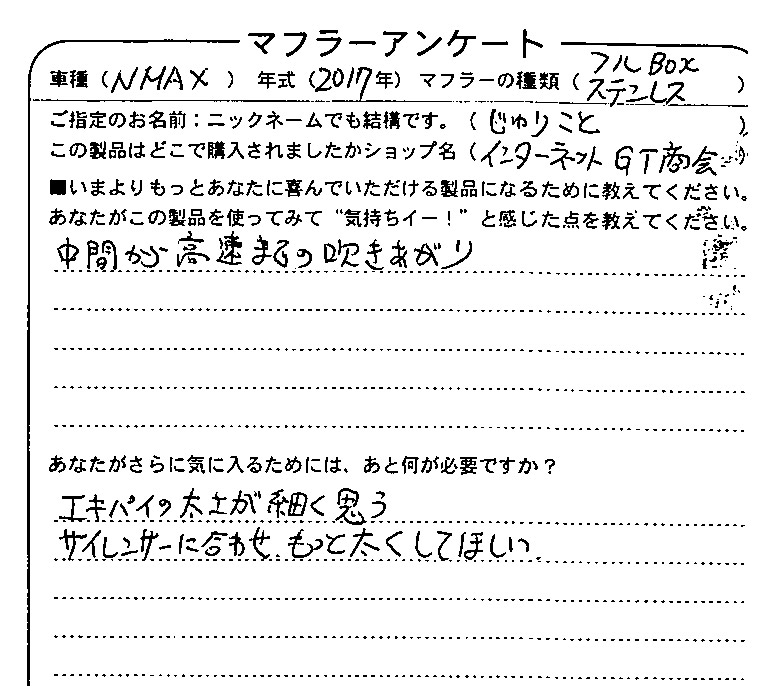 マフラーアンケート
車種（NMAX） 年式（2017年）マフラーの種類（フルBOX ステンレス）
ご指定のお名前：ニックネームでも結構です。（じゅりこと）
この製品はどこで購入されましたかショップ名（インターネット GT商会
■いまよりもっとあなたに喜んでいただける製品になるために教えてください。
あなたがこの製品を使ってみて“気持ちイー！”と感じた点を教えてください。
中間から高速までの吹きあがり
あなたがさらに気に入るためには、あと何が必要ですか？
エキパイの太さが細く思う
サイレンサーに合わせ、もっと太くしてほしい。